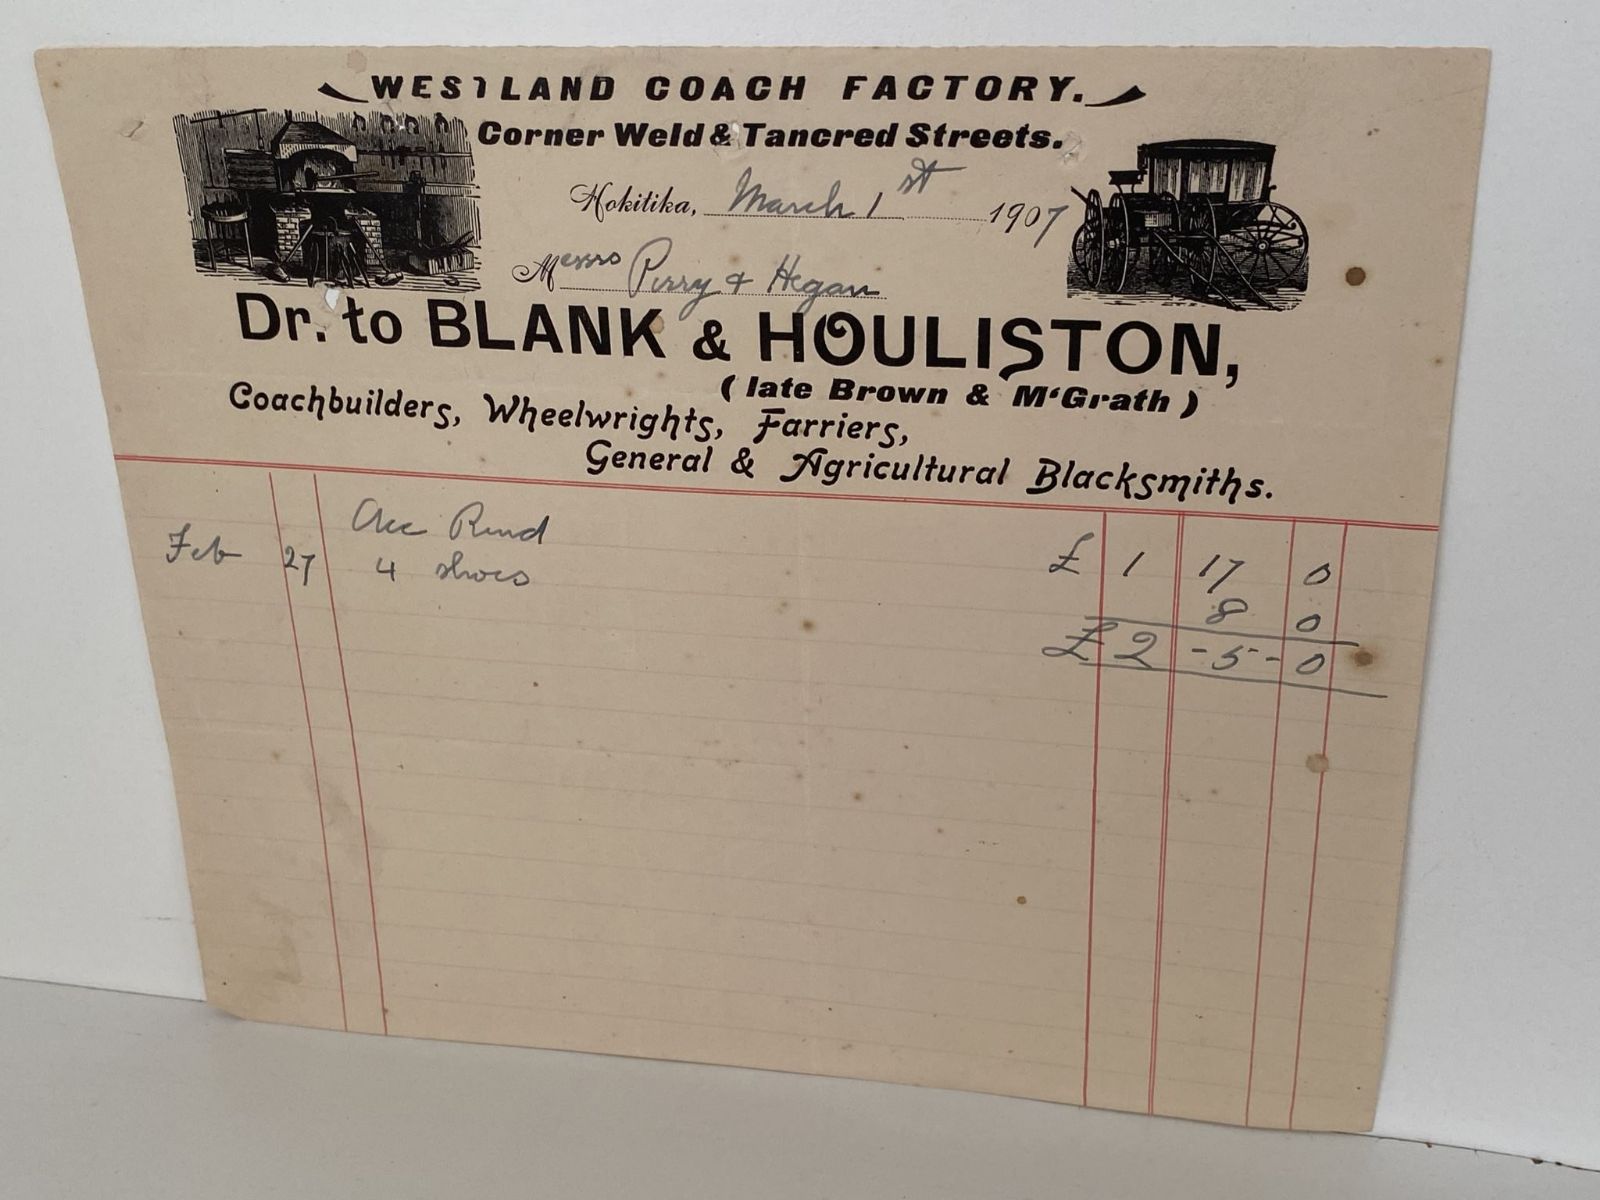 WESTLAND COACH FACTORY.
Corner Weld & Tancred Streets.
Hokitika, March 1st 1907
Messrs Perry & Hegan
Dr. to BLANK & HOULISTON,
( late Brown & M'Grath )
Coachbuilders, Wheelwrights, Farriers,
General & Agricultural Blacksmiths.
Acc Rend £ 1 17 0
Feb 27 4 shoes 8 0
£ 2 - 5 - 0